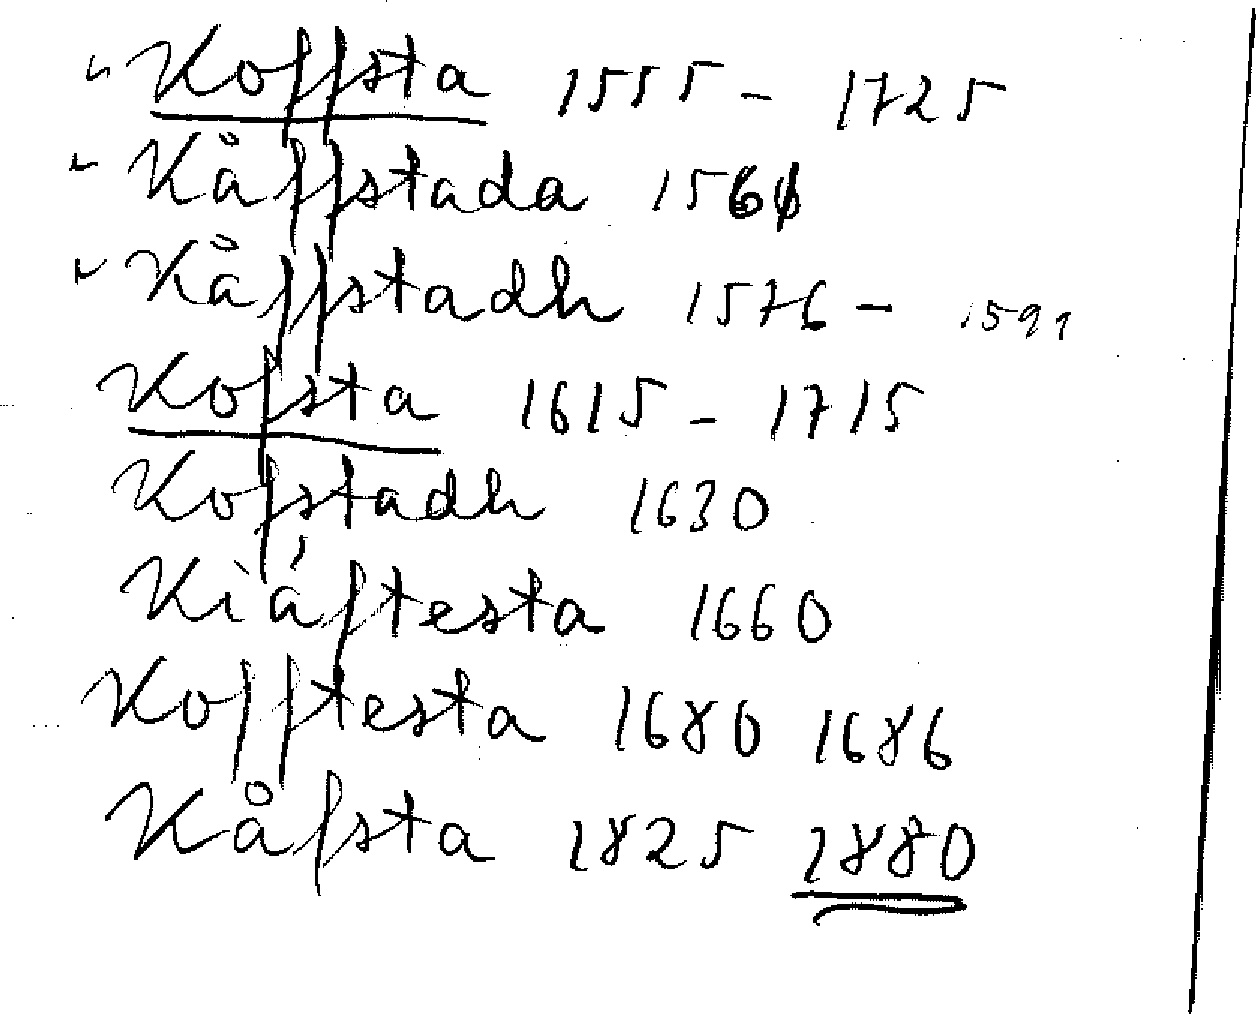 " Koffsta 1555 - 1725
" Kåffstada 1566
" Kåffstadh 1576 - 1591
Kofsta 1615 - 1715
Kofstadh 1630
Kiåftesta 1660
Kofftesta 1680 1686
Kåfsta 1825 1880